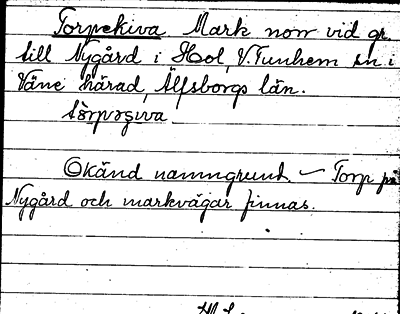 Torpekiva. Mark norr vid gr.
till Nygård i Hol, V. Tunhem sn. i
Väne härad, Älfsborgs län.
Okänd namngrund. – Torp på
Nygård och markvägar finnas.